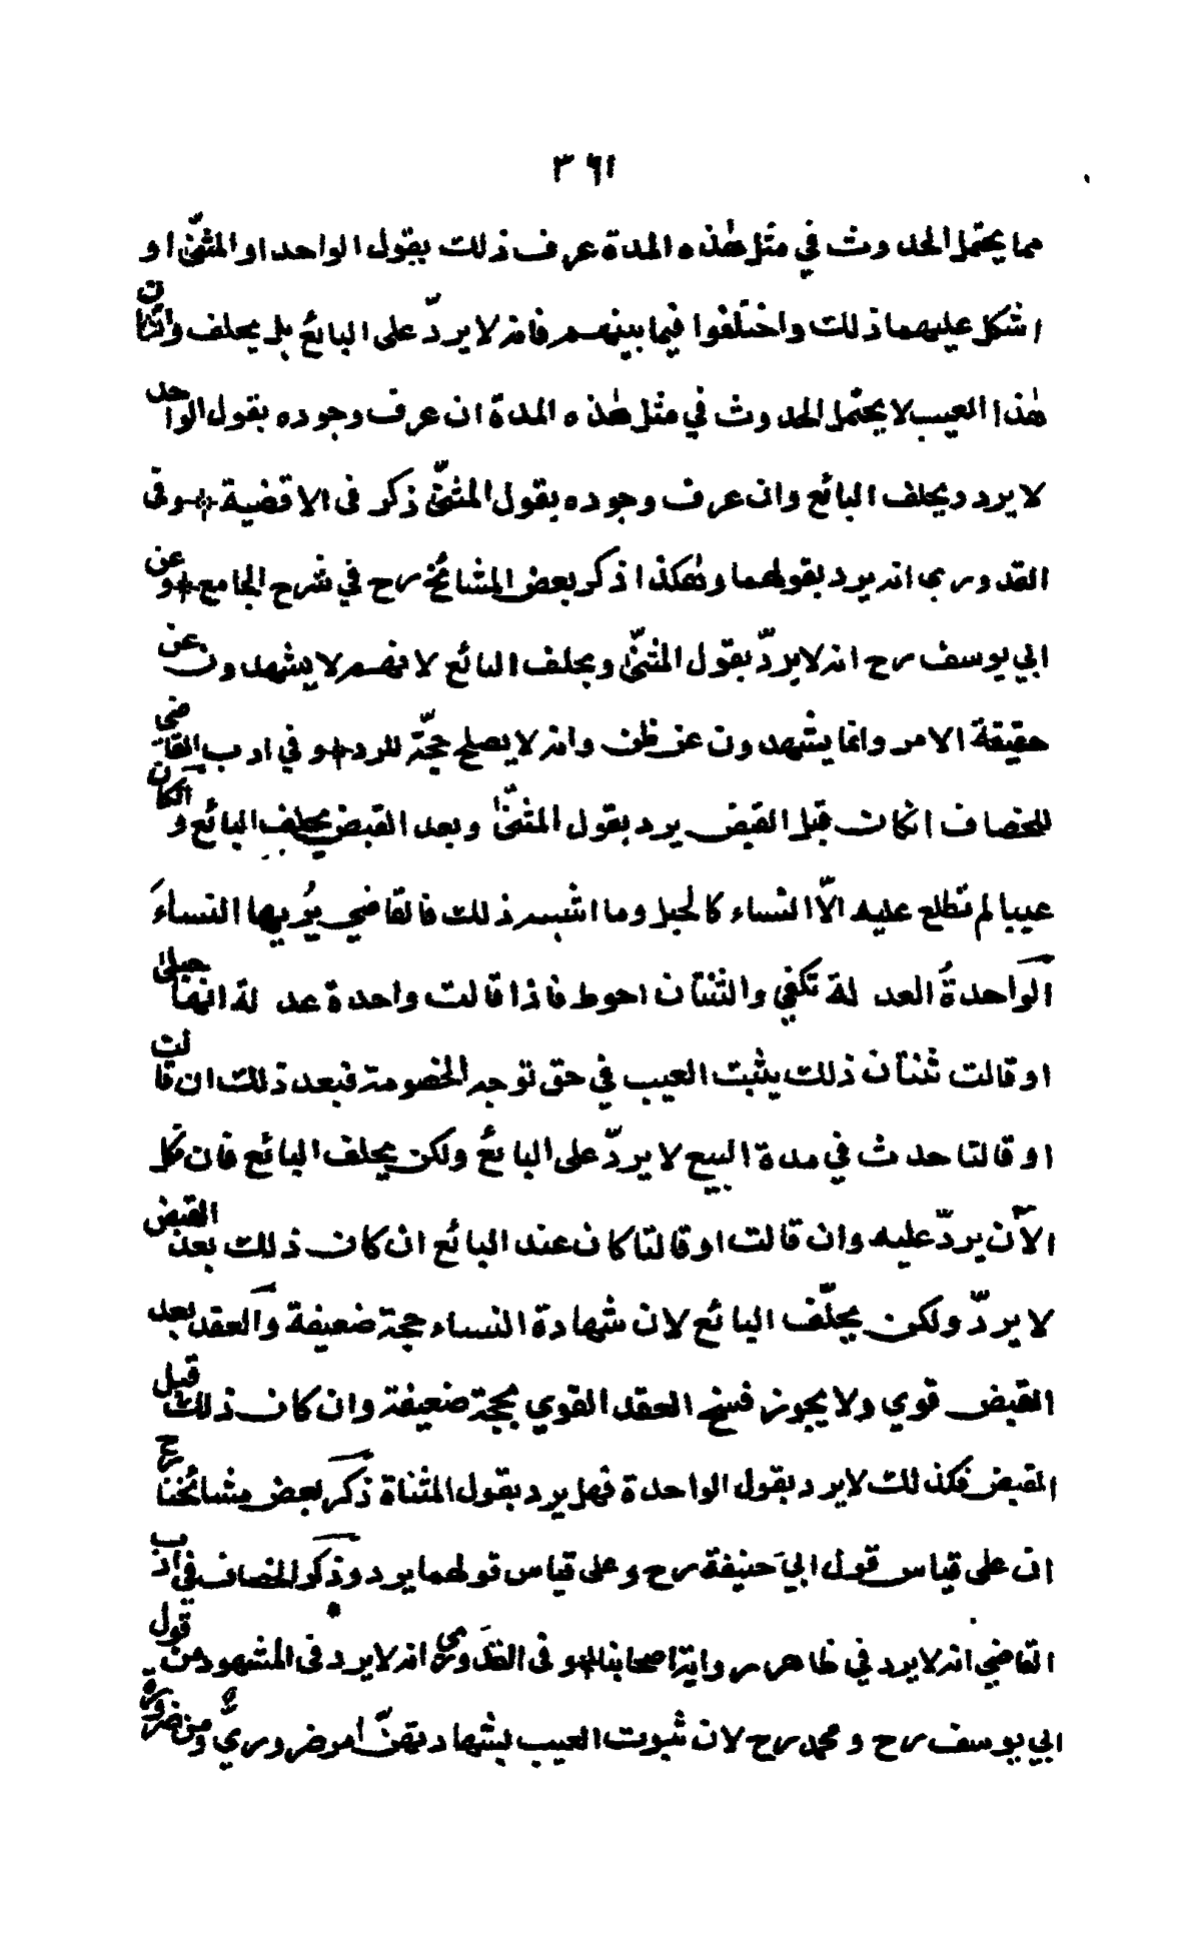 ٣٦١
مما يحتمل الحدوث في مثل هٰذه المدة عرف ذلك بقول الواحد او المثنّى او
اشكل عليهما ذلك واختلفوا فيما بينهم فانه لا يردّ على البائع بل يحلف وان كان
هٰذا العيب لا يحتمل الحدوث في مثل هٰذه المدة ان عرف وجوده بقول الواحد
لا يرد ويحلف البائع وان عرف وجوده بقول المثنّى ذكر فى الاقضية * وفى
القدوري انه يرد بقولهما وهٰكذا ذكر بعض المشائخ رح في شرح الجامع * وعن
ابي يوسف رح انه لا يردّ بقول المثنّى ويحلف البائع لانهم لا يشهدون عن
حقيقة الامر وانما يشهدون عن ظن وانه لا يصلح حجّة للرد * و في ادب القاضي
للخصاف انكان قبل القبض يرد بقول المثنّى وبعد القبض يحلف البائع و انكان
عيبا لم تطلع عليه الّا النساء كالحبل وما اشبه ذلك فالقاضي يُريها النساءَ
الواحدةُ العدلة تكفي والثنتان احوط فاذا قالت واحدة عدلة انها حبلى
او قالت ثنتان ذلك يثبت العيب في حق توجه الخصومة فبعد ذلك ان قالت
او قالتا حدث في مدة البيع لا يردّ على البائع ولكن يحلف البائع فان نكل
الآن يردّ عليه وان قالت او قالتا كان عند البائع ان كان ذلك بعد القبض
لا يردّ ولكن يحلّف البائع لان شهادة النساء حجة ضعيفة والعقد بعد
القبض قوي ولا يجوز فسخ العقد القوي بحجة ضعيفة وان كان ذلك قبل
القبض فكذلك لا يرد بقول الواحدة فهل يرد بقول المثناة ذكر بعض مشائخنا رح
ان على قياس قول ابي حنيفة رح وعلى قياس قولهما يرد وذكر الخصاف في ادب
القاضي انه لا يرد في ظاهر رواية اصحابنا * و فى القدوري انه لا يرد فى المشهور من قول
ابي يوسف رح و محمد رح لان ثبوت العيب بشهادتهنّ امر ضروريٌّ ومن ضرورة